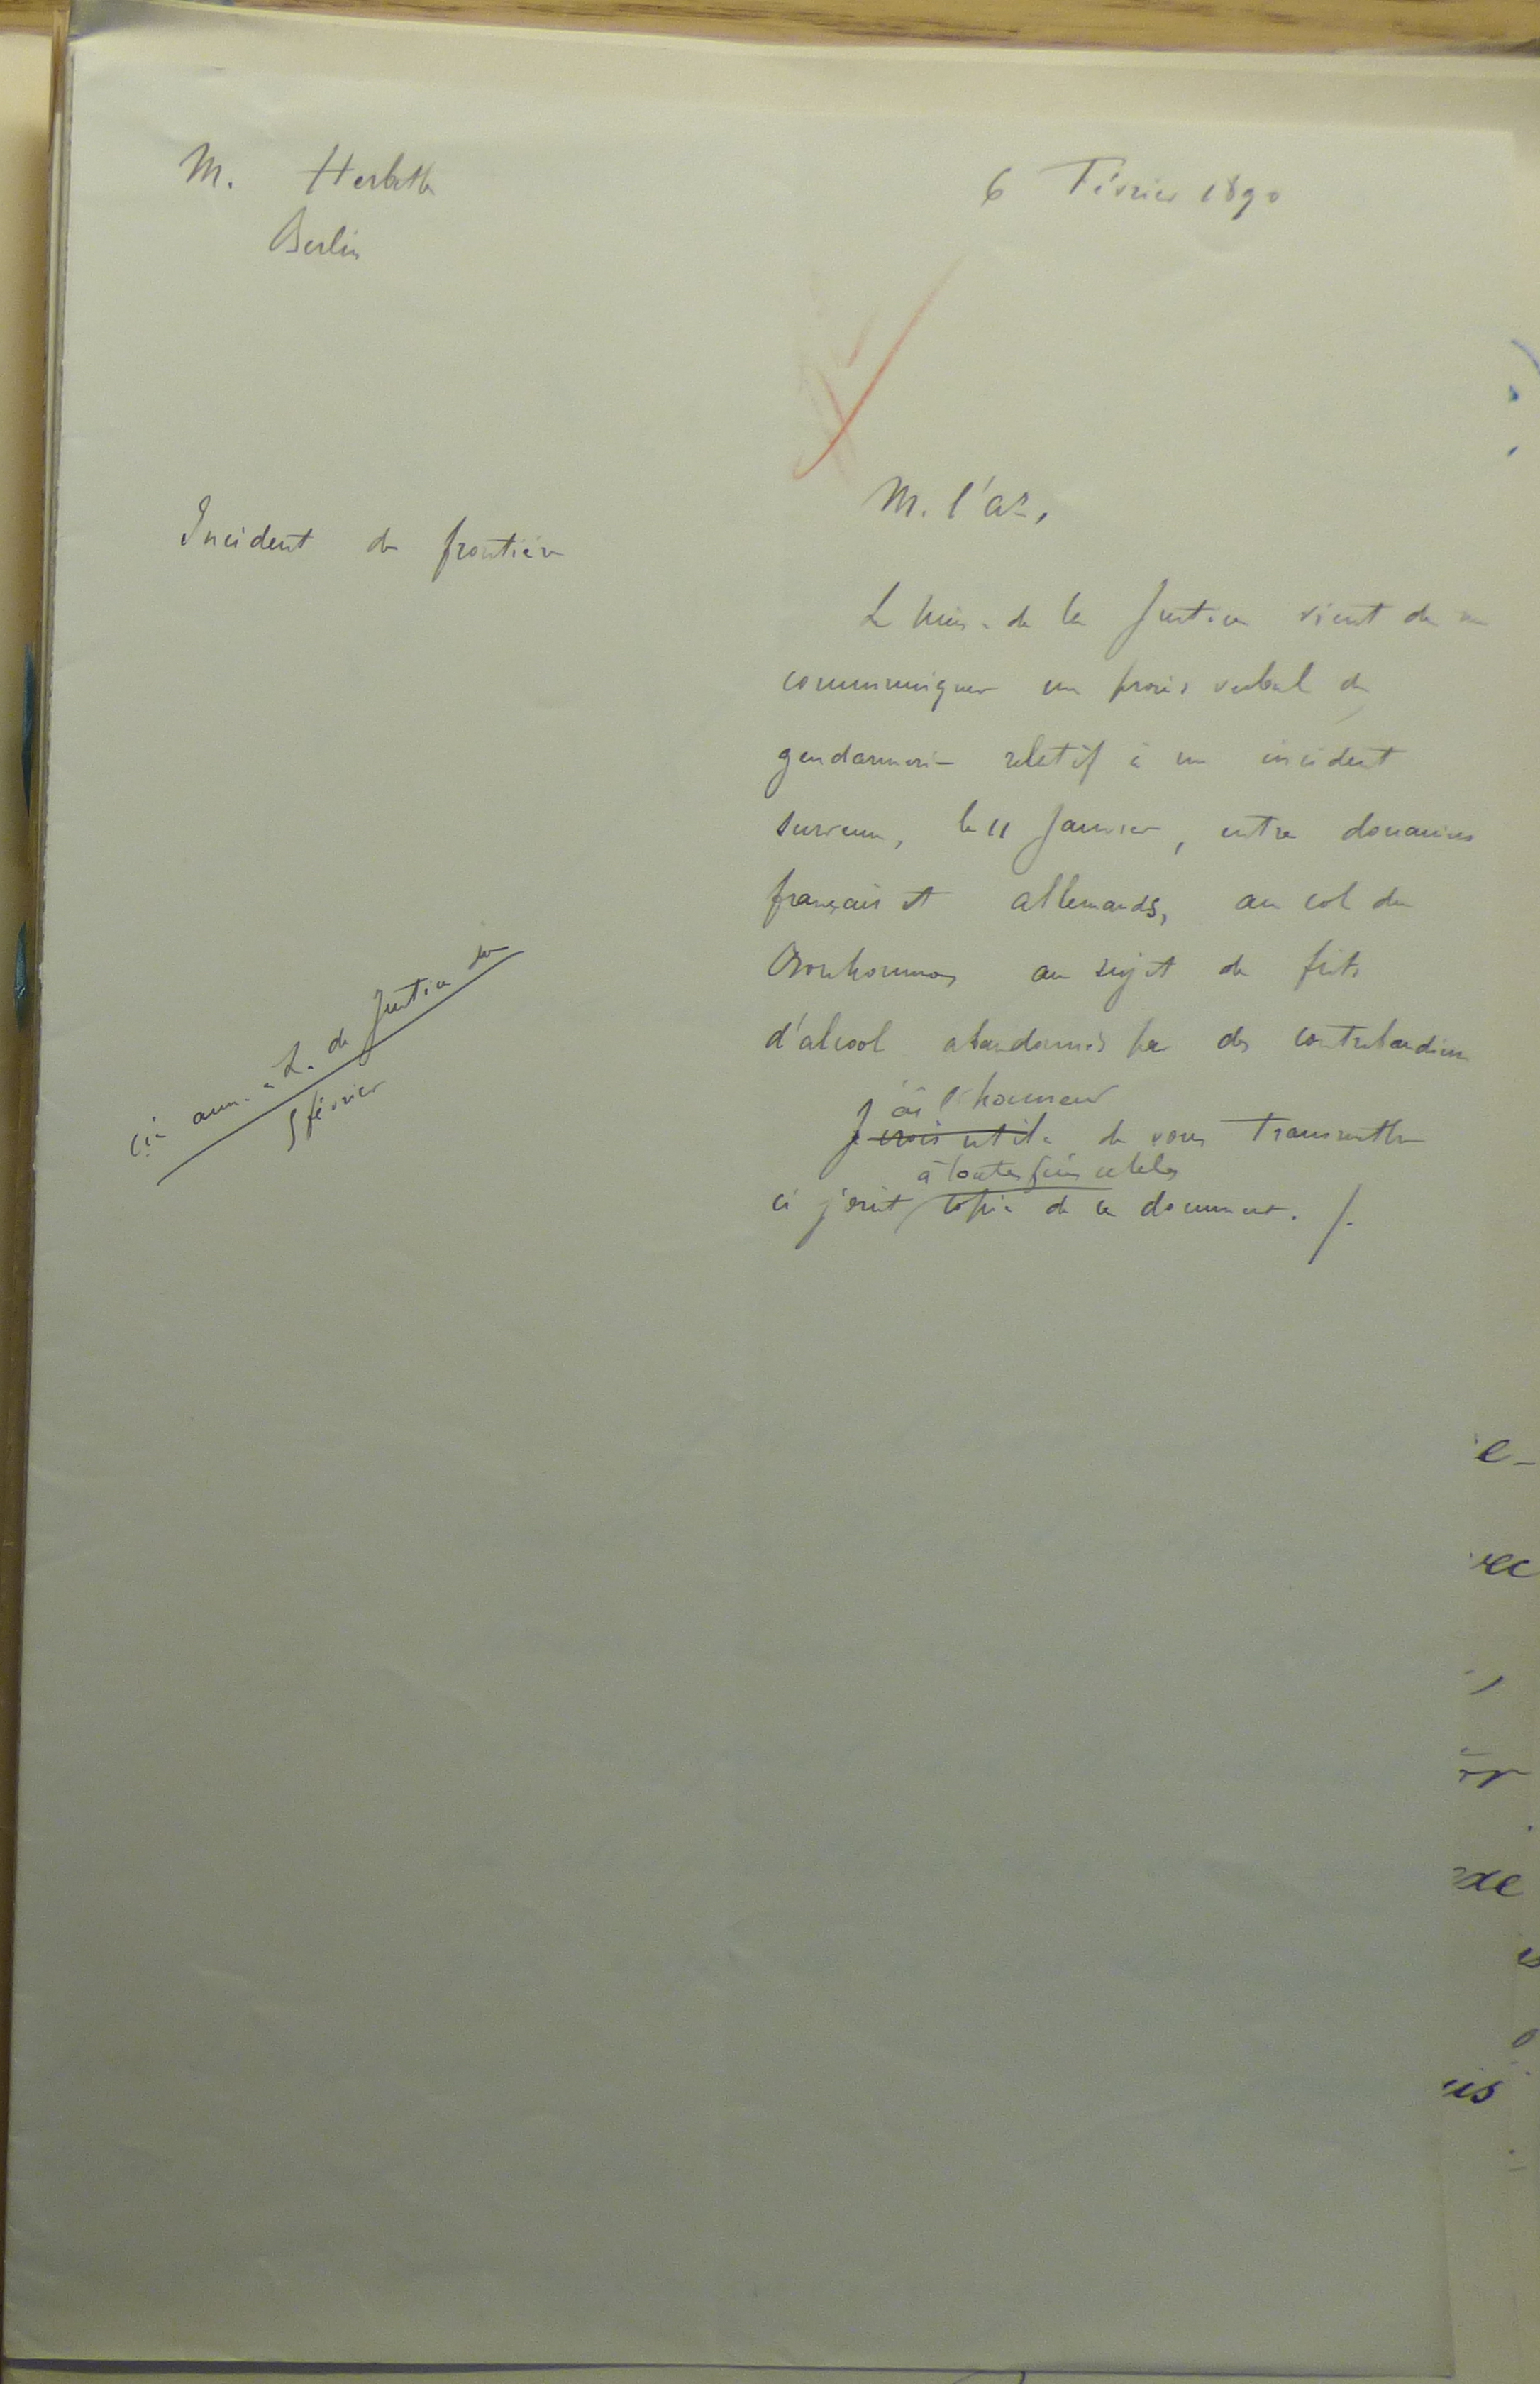 M. Herbette
Berlin
6 Février 1890
Incident de frontière
M. l'ar,
Le Min. de la Justice vient de me
communiquer un procès verbal de
gendarmerie relatif à un incident
survenu, le 11 Janvier, entre douaniers
français et allemands, au col du
Bonhomme, au sujet de fûts
d'alcool abandonnés par des contrebandiers
J'ai l'honneur
Je crois utile de vous transmettre
à toutes fins utiles
ci joint copie de ce document. /.
Ci ann. L. de Justice du
5 février